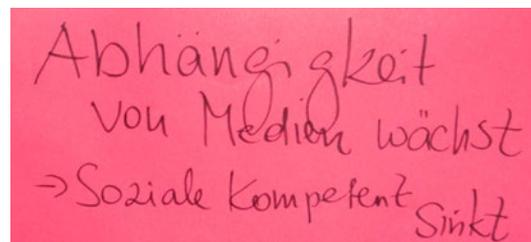 Abhängigkeit
von Medien wächst
→ Soziale Kompetent sinkt